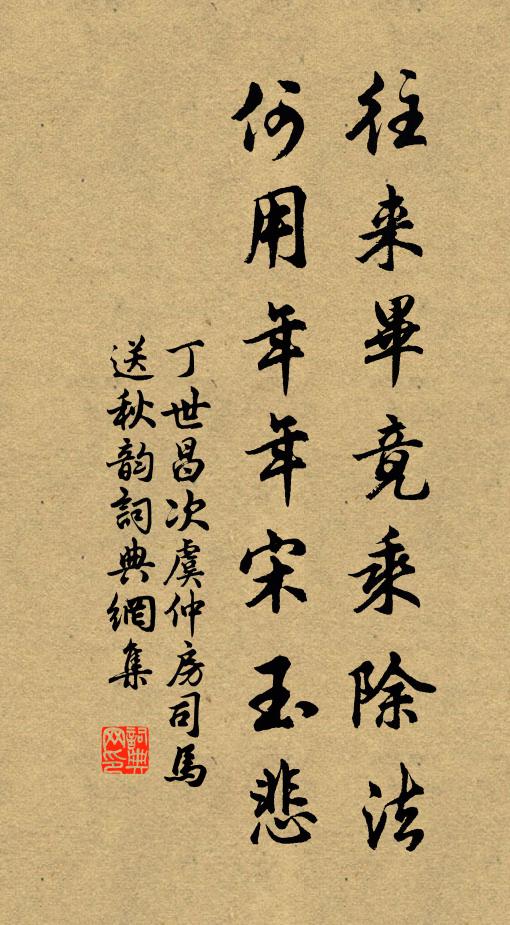 往来畢竟乘除法
何用年年宋玉悲
丁世昌次虞仲房司馬
送秋韵詞典網集
詞典
网印